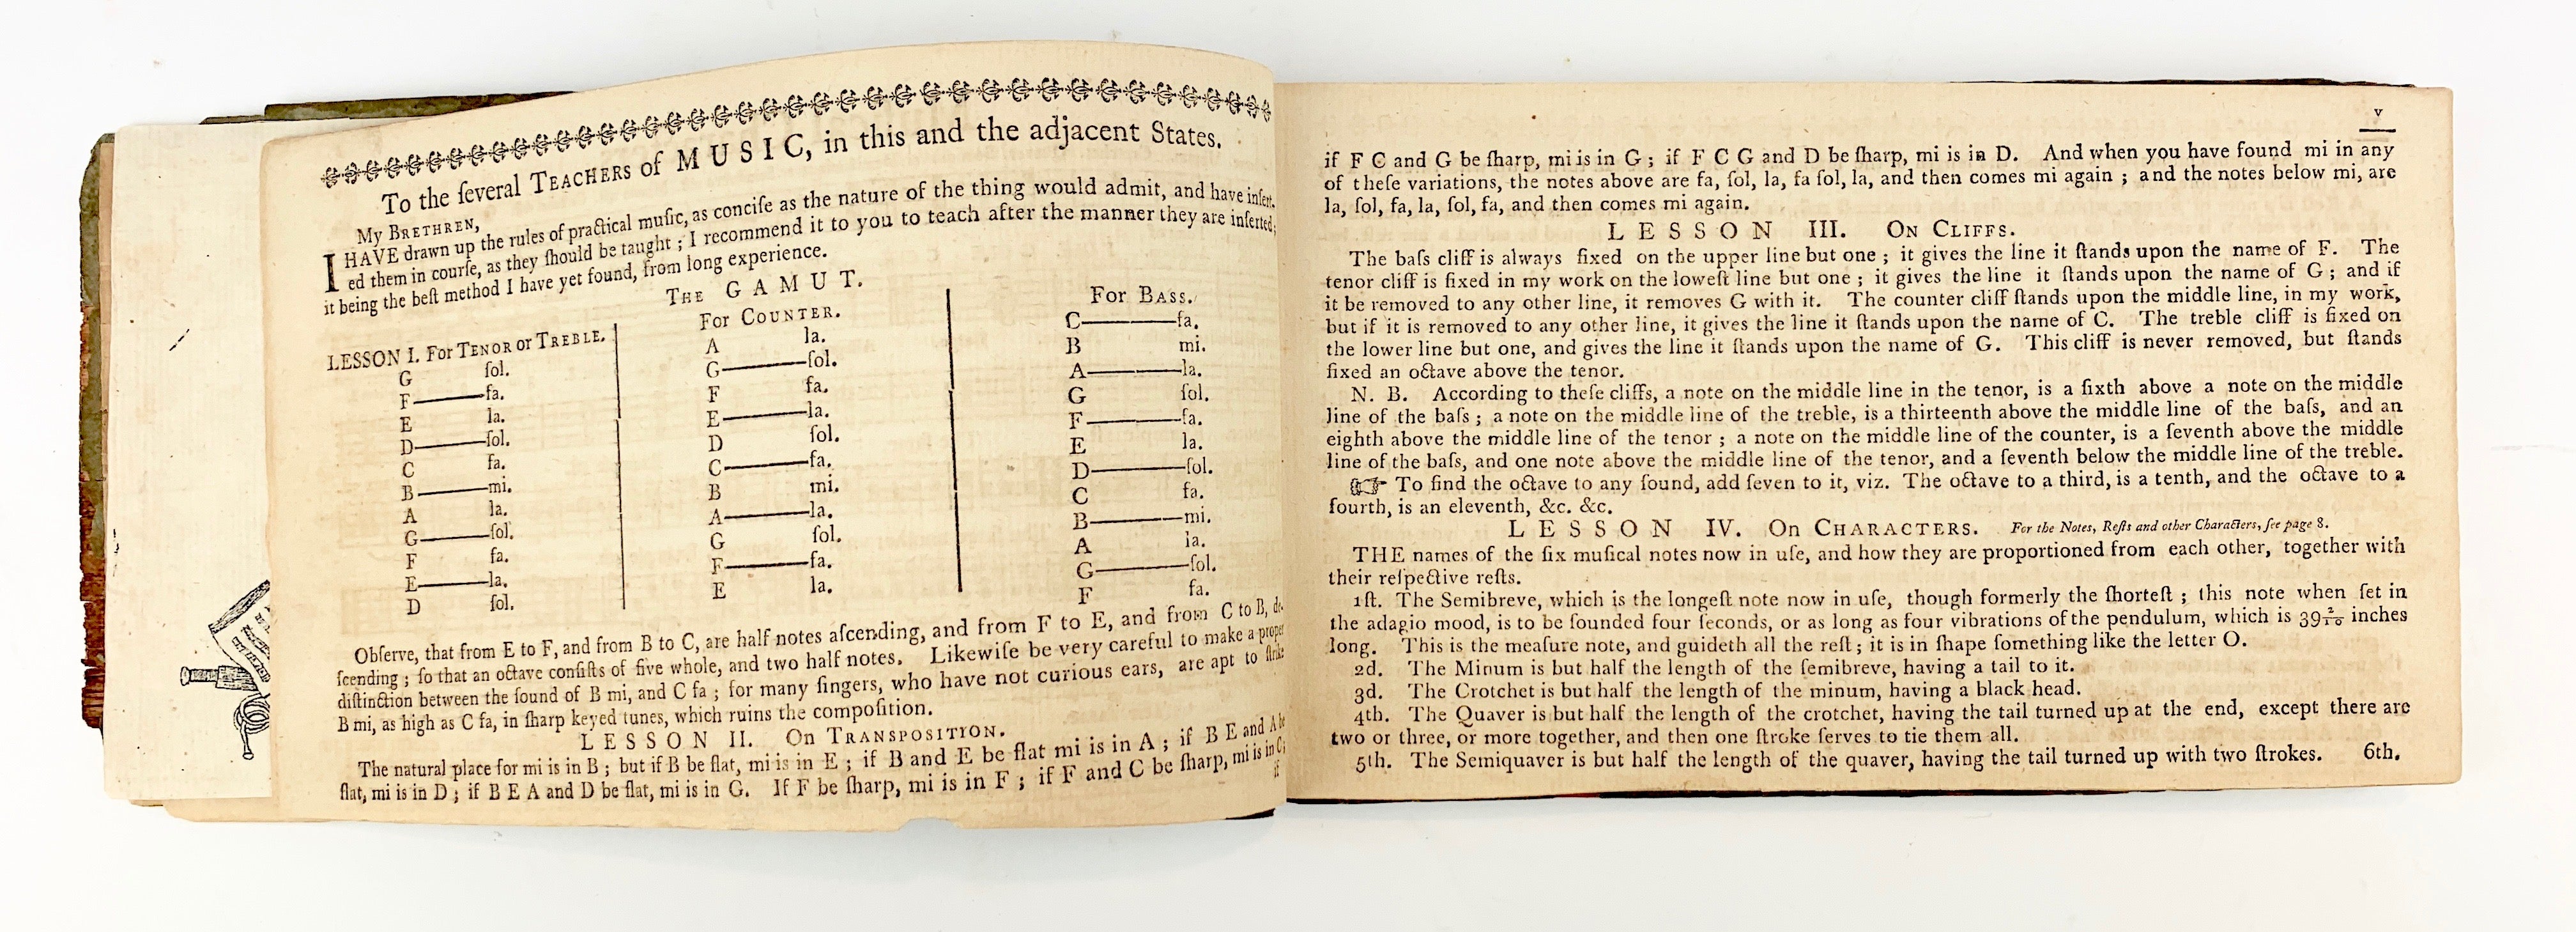 To the ſeveral TEACHERS of MUSIC, in this and the adjacent States.
My BRETHREN,
I HAVE drawn up the rules of practical muſic, as conciſe as the nature of the thing would admit, and have inſert-
ed them in courſe, as they ſhould be taught ; I recommend it to you to teach after the manner they are inſerted;
it being the beſt method I have yet found, from long experience.
THE GAMUT.
LESSON I. For TENOR or TREBLE.
G ſol.
F———fa.
E la.
D———ſol.
C fa.
B———mi.
A la.
G———ſol.
F fa.
E———la.
D ſol.
For COUNTER.
A la.
G———ſol.
F fa.
E———la.
D ſol.
C———fa.
B mi.
A———la.
G ſol.
F———fa.
E la.
For BASS.
C———fa.
B mi.
A———la.
G ſol.
F———fa.
E la.
D———ſol.
C fa.
B———mi.
A la.
G———ſol.
F fa.
Obſerve, that from E to F, and from B to C, are half notes aſcending, and from F to E, and from C to B, de-
ſcending ; ſo that an octave conſiſts of five whole, and two half notes. Likewiſe be very careful to make a proper
diſtinction between the ſound of B mi, and C fa ; for many ſingers, who have not curious ears, are apt to ſtrike
B mi, as high as C fa, in ſharp keyed tunes, which ruins the compoſition.
LESSON II. On TRANSPOSITION.
The natural place for mi is in B ; but if B be flat, mi is in E ; if B and E be flat mi is in A ; if B E and A be
flat, mi is in D ; if B E A and D be flat, mi is in G. If F be ſharp, mi is in F ; if F and C be ſharp, mi is in C;
if
v
if F C and G be ſharp, mi is in G ; if F C G and D be ſharp, mi is in D. And when you have found mi in any
of theſe variations, the notes above are fa, ſol, la, fa ſol, la, and then comes mi again ; and the notes below mi, are
la, ſol, fa, la, ſol, fa, and then comes mi again.
LESSON III. ON CLIFFS.
The baſs cliff is always fixed on the upper line but one ; it gives the line it ſtands upon the name of F. The
tenor cliff is fixed in my work on the loweſt line but one ; it gives the line it ſtands upon the name of G ; and if
it be removed to any other line, it removes G with it. The counter cliff ſtands upon the middle line, in my work,
but if it is removed to any other line, it gives the line it ſtands upon the name of C. The treble cliff is fixed on
the lower line but one, and gives the line it ſtands upon the name of G. This cliff is never removed, but ſtands
fixed an octave above the tenor.
N. B. According to theſe cliffs, a note on the middle line in the tenor, is a ſixth above a note on the middle
line of the baſs ; a note on the middle line of the treble, is a thirteenth above the middle line of the baſs, and an
eighth above the middle line of the tenor ; a note on the middle line of the counter, is a ſeventh above the middle
line of the baſs, and one note above the middle line of the tenor, and a ſeventh below the middle line of the treble.
☞ To find the octave to any ſound, add ſeven to it, viz. The octave to a third, is a tenth, and the octave to a
fourth, is an eleventh, &c. &c.
LESSON IV. On CHARACTERS. For the Notes, Reſts and other Characters, ſee page 8.
THE names of the ſix muſical notes now in uſe, and how they are proportioned from each other, together with
their reſpective reſts.
1ſt. The Semibreve, which is the longeſt note now in uſe, though formerly the ſhorteſt ; this note when ſet in
the adagio mood, is to be ſounded four ſeconds, or as long as four vibrations of the pendulum, which is 39 2/10 inches
long. This is the meaſure note, and guideth all the reſt ; it is in ſhape ſomething like the letter O.
2d. The Minum is but half the length of the ſemibreve, having a tail to it.
3d. The Crotchet is but half the length of the minum, having a black head.
4th. The Quaver is but half the length of the crotchet, having the tail turned up at the end, except there are
two or three, or more together, and then one ſtroke ſerves to tie them all.
5th. The Semiquaver is but half the length of the quaver, having the tail turned up with two ſtrokes. 6th.